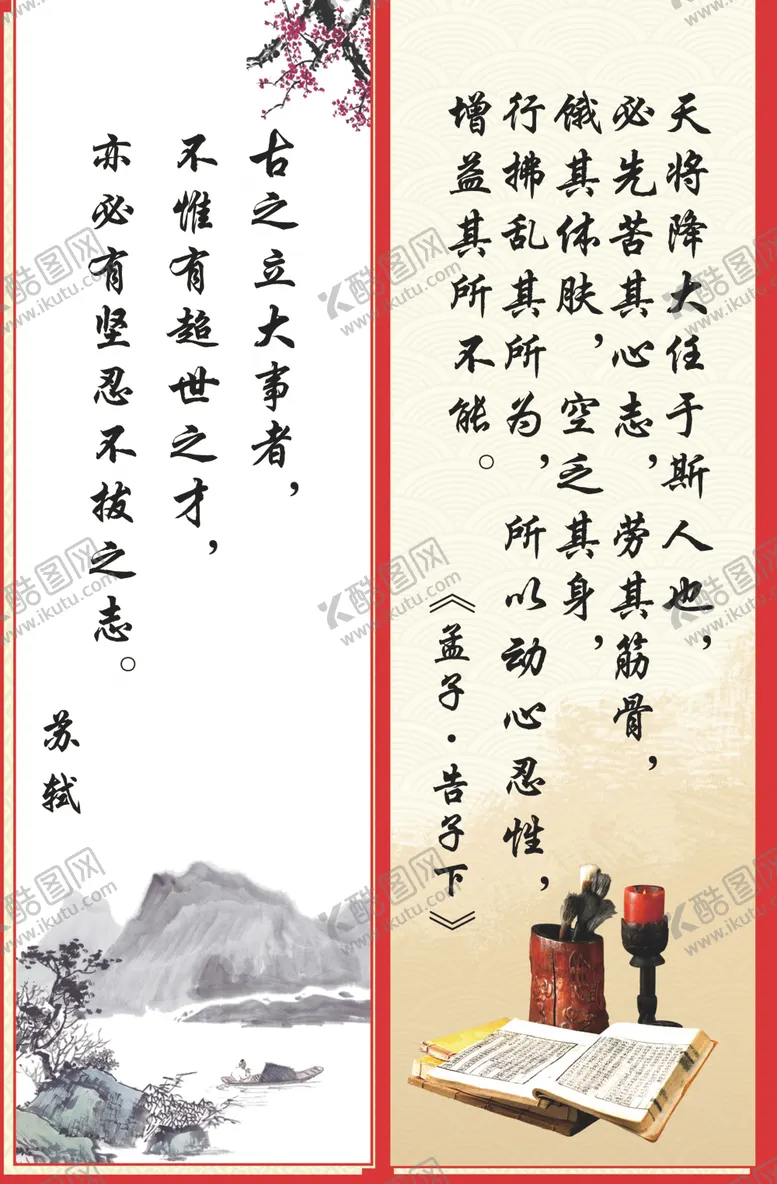 天将降大任于斯人也，
必先苦其心志，劳其筋骨，
饿其体肤，空乏其身，
行拂乱其所为，所以动心忍性，
增益其所不能。
《孟子·告子下》
古之立大事者，
不惟有超世之才，
亦必有坚忍不拔之志。
苏轼
酷图网
www.ikutu.com